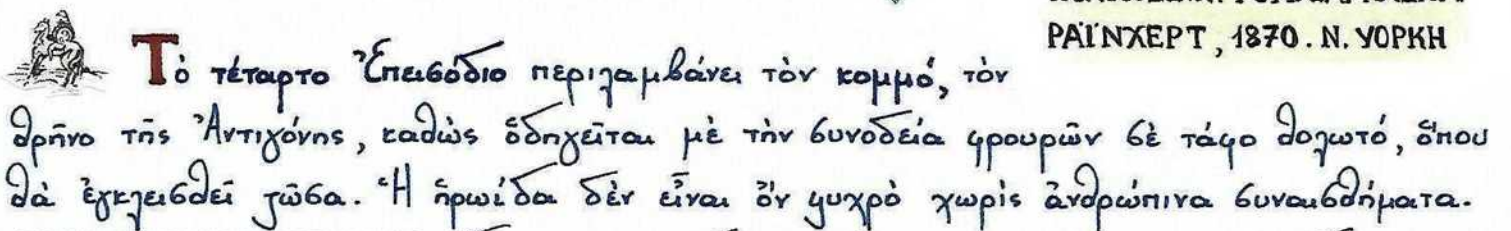 ΡΑΪΝΧΕΡΤ, 1870. Ν. ΥΟΡΚΗ
Τὸ τέταρτο Ἐπεισόδιο περιλαμβάνει τὸν κομμό, τὸν
θρῆνο τῆς Ἀντιγόνης, καθὼς ὁδηγεῖται μὲ τὴν συνοδεία φρουρῶν σὲ τάφο θολωτό, ὅπου
θὰ ἐγκλεισθεῖ ζῶσα. Ἡ ἡρωίδα δὲν εἶναι ὄν ψυχρὸ χωρὶς ἀνθρώπινα συναισθήματα.